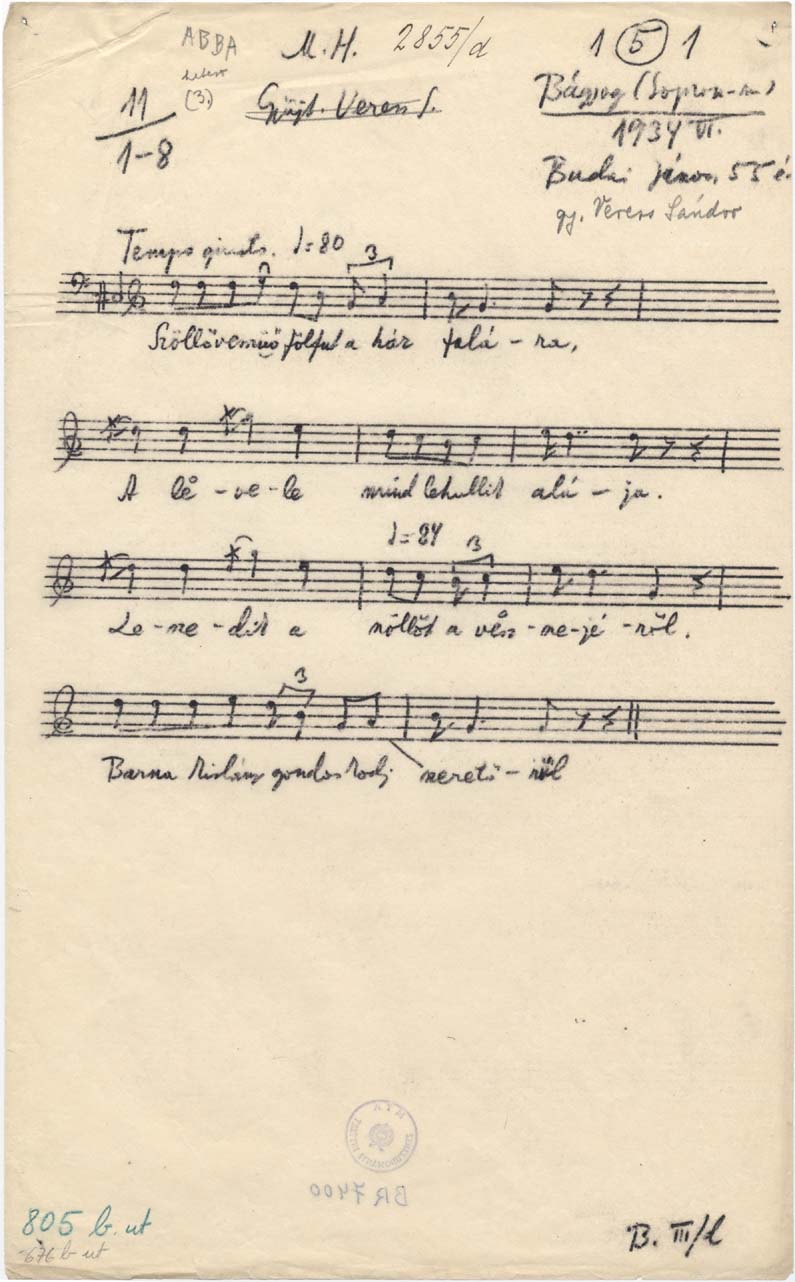 ABBA
M. H. 2855/d
1 (5) 1
(3.)
11
1-8
Gyüjt. Veress S.
Bágyog (Sopron-m.)
1934 VI.
Budai János, 55 é.
gy. Veress Sándor
Tempo giusto. ♩=80
3
Szöllővemüő fölfut a ház falá-ra,
A lë̊-ve-le mind lehullik alá-ja.
♩=84
3
Le-sze-dik a szöllőt a vësz-sze-jé-ről.
3
Barna kislány gondoskodj szerető-ről
BR 7400
805 b. ut
676 b ut
B. III/l